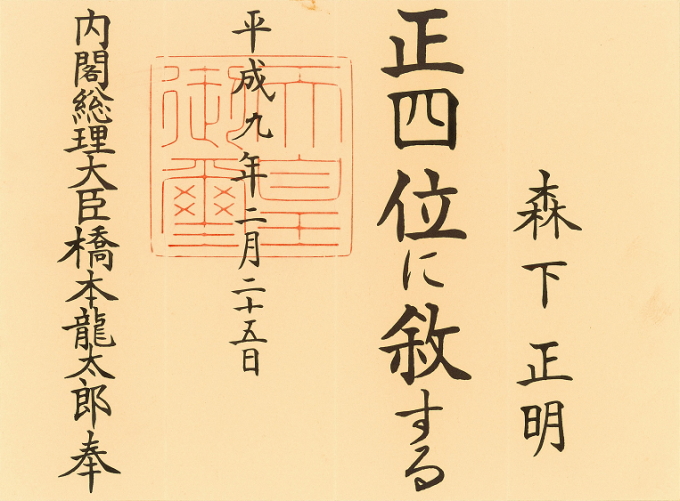 森下正明
正四位に敘する
平成九年二月二十五日
天皇御璽
内閣総理大臣橋本龍太郎奉